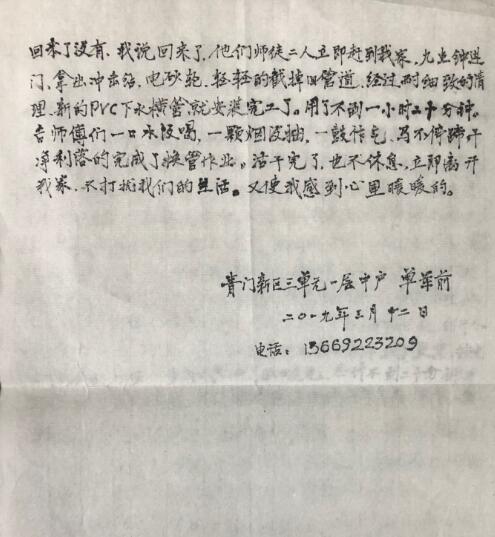 回来了没有，我说回来了，他们师徒二人立即赶到我家，九点钟进
门，拿出冲击钻，电砂轮，轻轻的截掉旧管道，经过耐细致的清
理，新的PVC下水横管就安装完工了。用了不到一小时二十分钟。
师傅们一口水没喝，一颗烟没抽，一鼓作气，马不停蹄干
净利落的完成了换管作业。活干完了，也不休息，立即离开
我家，不打扰我们的生活。又使我感到心里暖暖的。
青门新区三单元一层中户 单华前
二〇一九年三月十二日
电话：13669223209